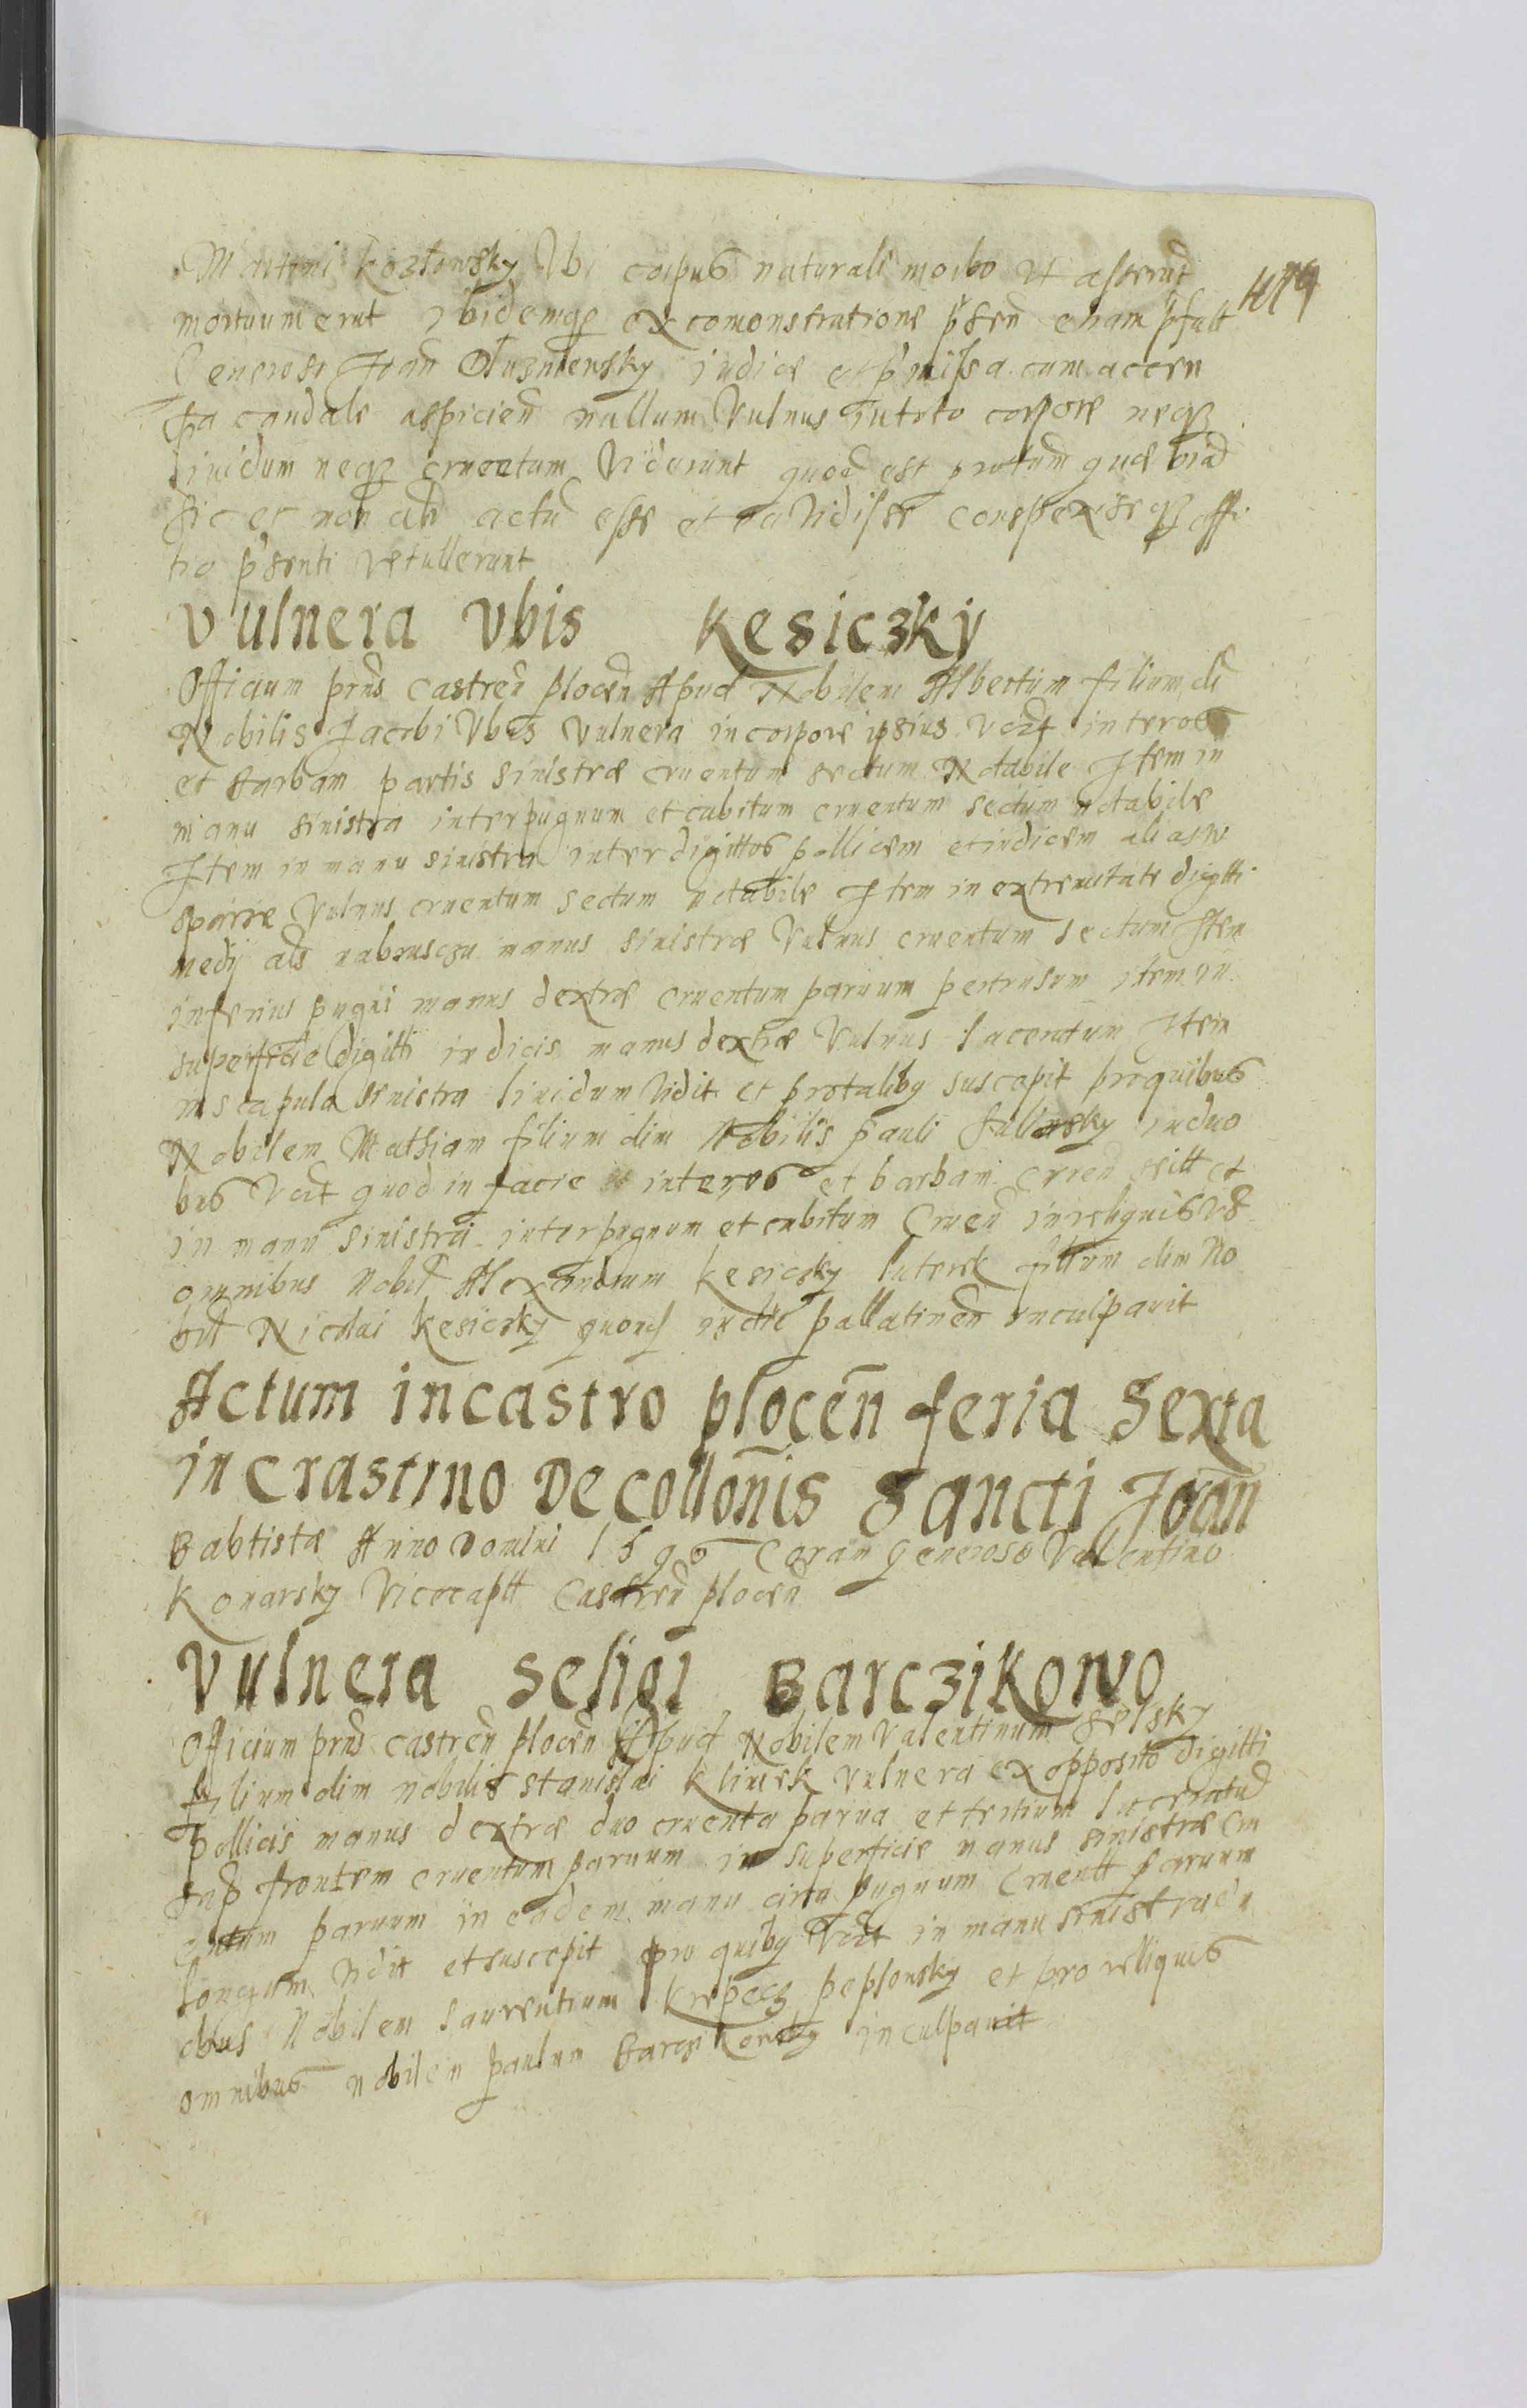 Martini Kozlowsky Vbi corpus naturali morbo vt asserund
mortuum erat Ibidemqe ex comonstratione p̃sen etiam p̃fatt
479
Generosi Joan̄ Gluzniewsky iudice et p̃missa cum accen
sa candale aspicien̄ nullum Vulnus in toto corpore neqz
liuidum neqz cruentum Viderunt quod est
sic et non ali actu esse et ea Vidisse conspexisseqz offi
tio p̃senti retullerunt
Vulnera Vbis Kesiczky
Officium prn̄s Castren̄ plocen̄ Apud Nobilem Albertum filium
Nobilis Jacobi Vbis Vulnera in corpore ipsius Vdzt inter os
et barbam partis sinistræ cruentum sectum Notabile Item in
manu sinistra inter pugnum et cubitum cruentum sectum notabile
Item in manu sinistra inter digittos pollicem et indicem alias w
sparze Vulnus cruentum sectum notabile Item in extremitate digitti
medij als nabrusczu manus sinistræ Vulnus cruentum sectum Item
inferius pugni manus dextræ cruentum paruum pertrusum item in
superficie digitti indicis manus dextræ Vulnus laceratum Item
in scapula sinistra liuidum Vidit et pro taliby suscepit pro quibus
Nobilem Mathiam filium olim Nobilis pauli Kulinsky in duo
bus Vdzt quod in facie inter os et barbam cruen̄ sitt et
in manu sinistra inter pugnum et cubitum Cruen̄ in reliquis v8
omnibus Nobil Alexandrum Kesiczky luterek filium olim No
bil Nicolai Kesiczky quors pallatinen̄ inculpauit
Actum in castro plocen̄ feria Sexta
in Crastino Decollōnis Sancti Joan̄
Baptistæ Anno Domini 1596 Coram Generoso Valentino
Konarsky Vicecaptt Castren̄ plocen̄
Vulnera Seligi Barczikowo
Officium prn̄s Castren̄ plocen̄ Apud Nobilem Valentinum Selsky
filium olim nobilis Stanislai Klimek Vulnera ex opposito digitti
pollicis manus dextræ duo cruenta parua et tertium laceratū
sup frontem cruentum paruum in superficie manus sinistræ cru
entum paruum in eadem manu circa pugnum Cruentt paruum
longum Vidit et suscepit pro quiby Vdzt in manu sinistra du
obus Nobilem Laurentium Krepecz peplonsky et pro relliquis
omnibus nobilem paulum Barczikowsky inculpauit